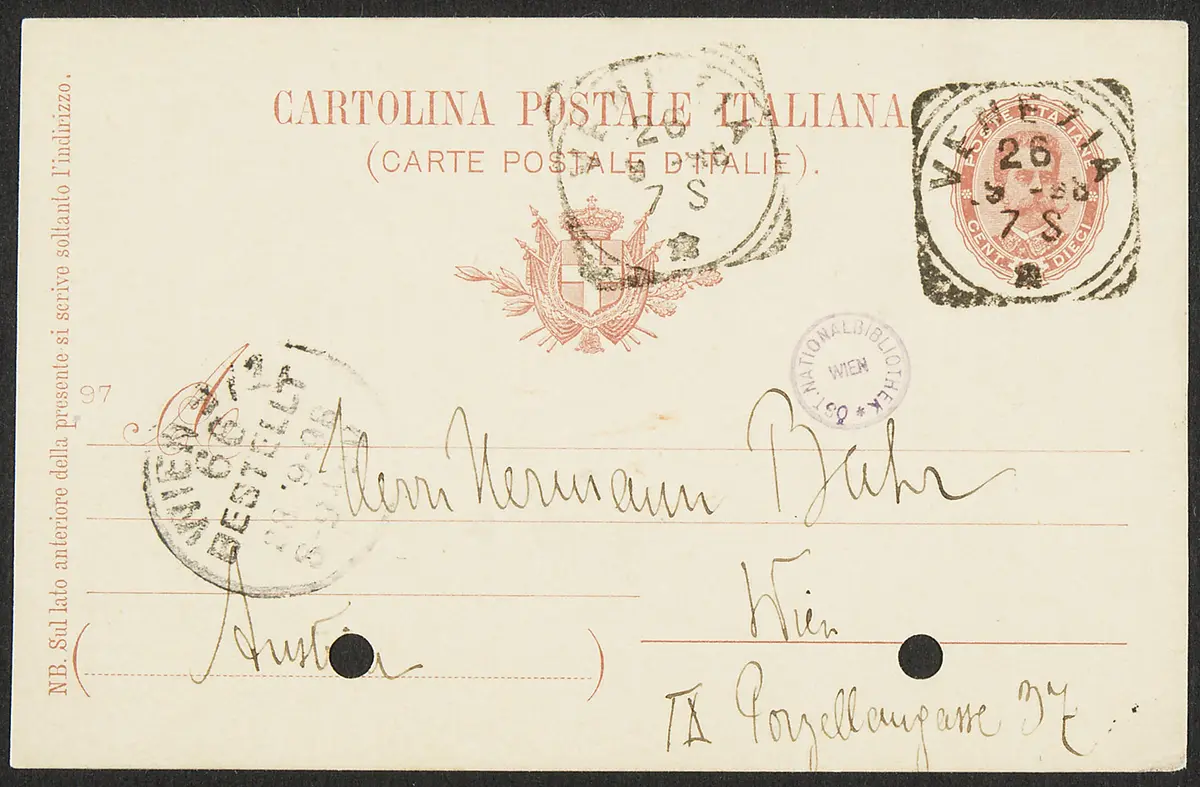 CARTOLINA POSTALE ITALIANA
(CARTE POSTALE D'ITALIE).
VENEZIA
26
7 S
VENEZIA
26
9 -98
7 S
POSTE ITALIANE
CENT. DIECI
ÖST. NATIONALBIBLIOTHEK *
WIEN
NB. Sul lato anteriore della presente si scrive soltanto l'indirizzo.
97
A
WIEN 9/1
66
BESTELLT
Herrn Hermann Bahr
Wien
Austria
IX Porzellangasse 37